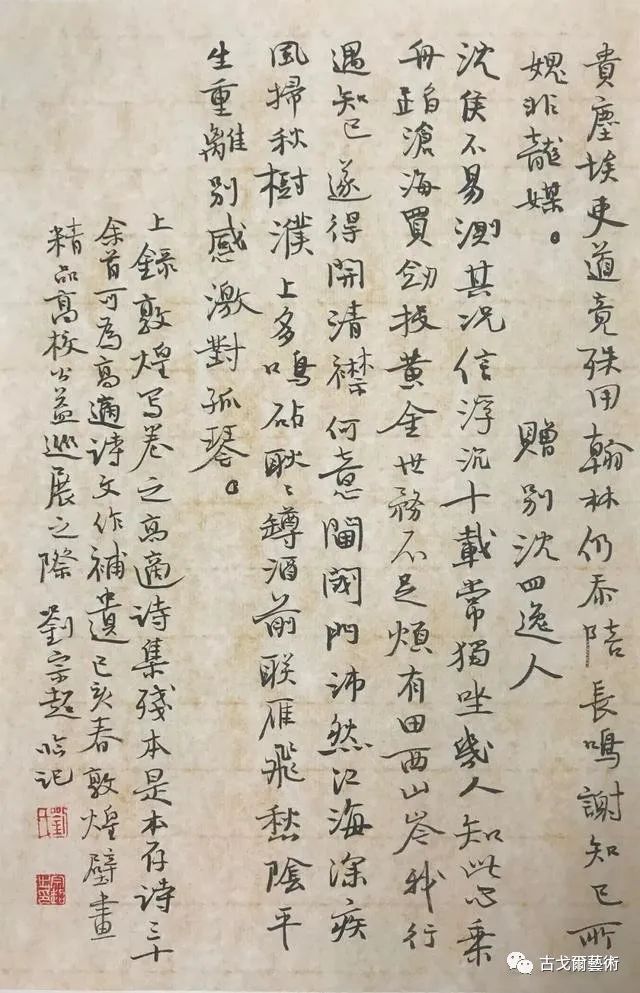 貴塵埃吏道竟殊用翰林仍忝陪長鳴謝知己所
媿非龍媒。
贈別沈四逸人
沈侯不易測其況信浮沉十載常獨坐幾人知此心乘
舟蹈滄海買劒投黃金世務不足煩有田西山岑我行
遇知己遂得開清襟何意閫閾門沛然江海深疾
風掃秋樹濮上多鳴砧耿〻罇酒前聯雁飛愁陰平
生重離別感激對孤琴。
上錄敦煌寫卷之高適詩集殘本是本存詩三十
余首可為高適詩文作補遺己亥春敦煌壁畫
精品高校公益巡展之際 劉宗超臨記
古戈爾藝術